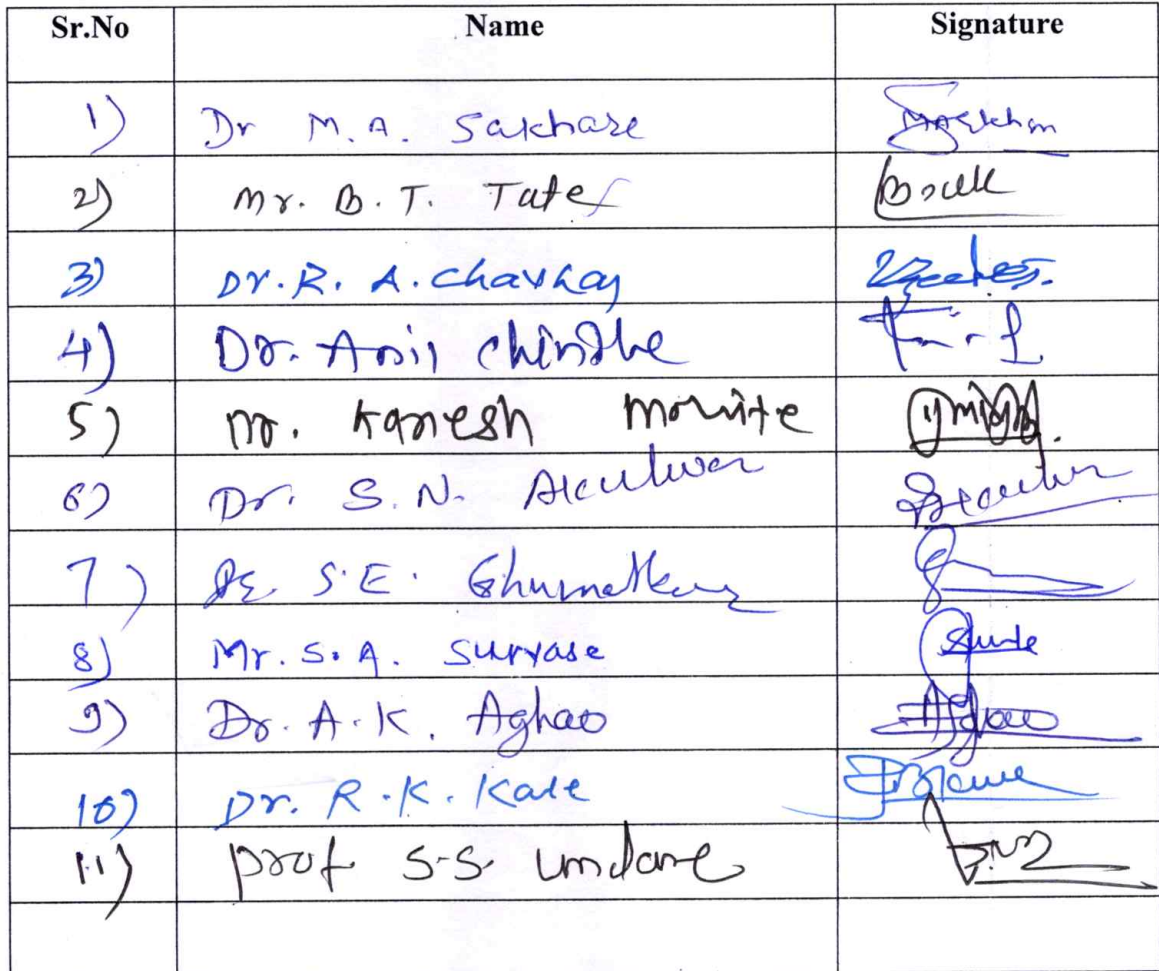 Sr.No Name Signature
1) Dr M.A. Sakhare
2) Mr. B.T. Tate
3) Dr. R. A. Chavhan
4) Dr. Anil Chindhe
5) Mr. Kanesh Mohite
6) Dr. S.N. Akulwar
7) Dr. S.E. Ghumatkar
8) Mr. S.A. Survase
9) Dr. A.K. Aghao Aghao
10) Dr. R.K. Kale
11) Prof S.S. Undare